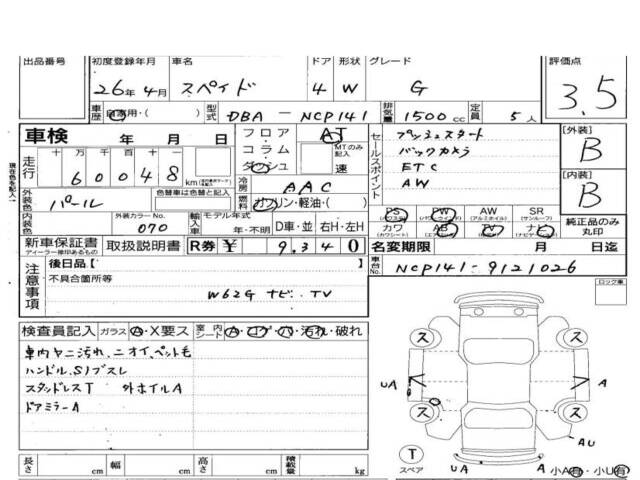 出品番号 初度登録年月 車名 ドア 形状 グレード 評価点
26年 4月 スペイド 4 W G 3.5
車歴 自家用・( ) 型式 DBA - NCP141 排気量 1500 cc 定員 5人
車検 年 月 日 フロア AT セールスポイント プッシュスタート [外装]
走行 十 万 千 百 十 一 コラム MTのみ記入 バックカメラ B
60048 km ダッシュ 速 ETC
現在色を記入 冷房 AAC AW [内装]
外装色 パール 色替車は色替と記入 燃料 ガソリン・軽油・( ) B
内装色 外装カラーNo. 070 輸入車 モデル年式 年・不明 D車・並 右H・左H
PS (パワステ) PW (パワーウインド) AW (アルミホイル) SR (サンルーフ) 純正品のみ丸印
カワ (カワシート) AB ナビ
新車保証書 ディーラー捺印あるもの 取扱説明書 R券 ¥ 9.340 名変期限 月 日迄
注意事項 後日品【 】 車台No. NCP141-9121026
不具合箇所等
W62G ナビ.TV
ロック車
検査員記入 ガラス A・X要ス 室内シート A・コゲ・穴・汚れ・破れ
車内ヤニ汚れ、ニオイ、ペット毛
ハンドル.S1ブスレ
スタッドレスT 外ホイルA
ドアミラーA
ス ス
UA A
ス ス
AU
T
スペア UA A 小A有・小U有
長さ cm 幅 cm 高さ cm 積載量 kg